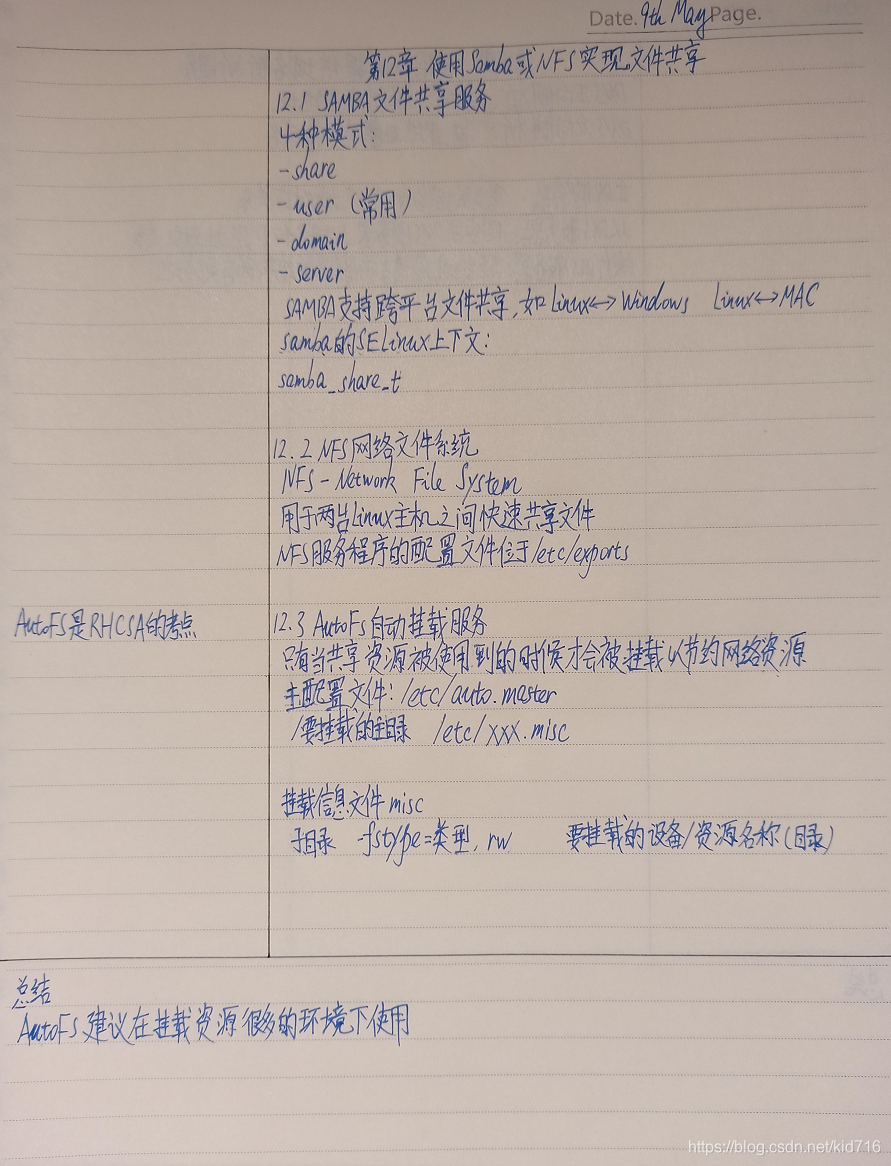 Date. 9th May Page.
第12章 使用Samba或NFS实现文件共享
12.1 SAMBA文件共享服务
4种模式:
-share
-user (常用)
-domain
-server
SAMBA支持跨平台文件共享,如Linux<->Windows Linux<->MAC
samba的SELinux上下文:
samba_share_t
12.2 NFS网络文件系统
NFS-Network File System
用于两台Linux主机之间快速共享文件
NFS服务程序的配置文件位于/etc/exports
AutoFS是RHCSA的考点
12.3 AutoFs自动挂载服务
只有当共享资源被使用到的时候才会被挂载以节约网络资源
主配置文件: /etc/auto.master
/要挂载的主目录 /etc/xxx.misc
挂载信息文件misc
子目录 -fstype=类型,rw 要挂载的设备/资源名称(目录)
总结
AutoFS建议在挂载资源很多的环境下使用
https://blog.csdn.net/kid716